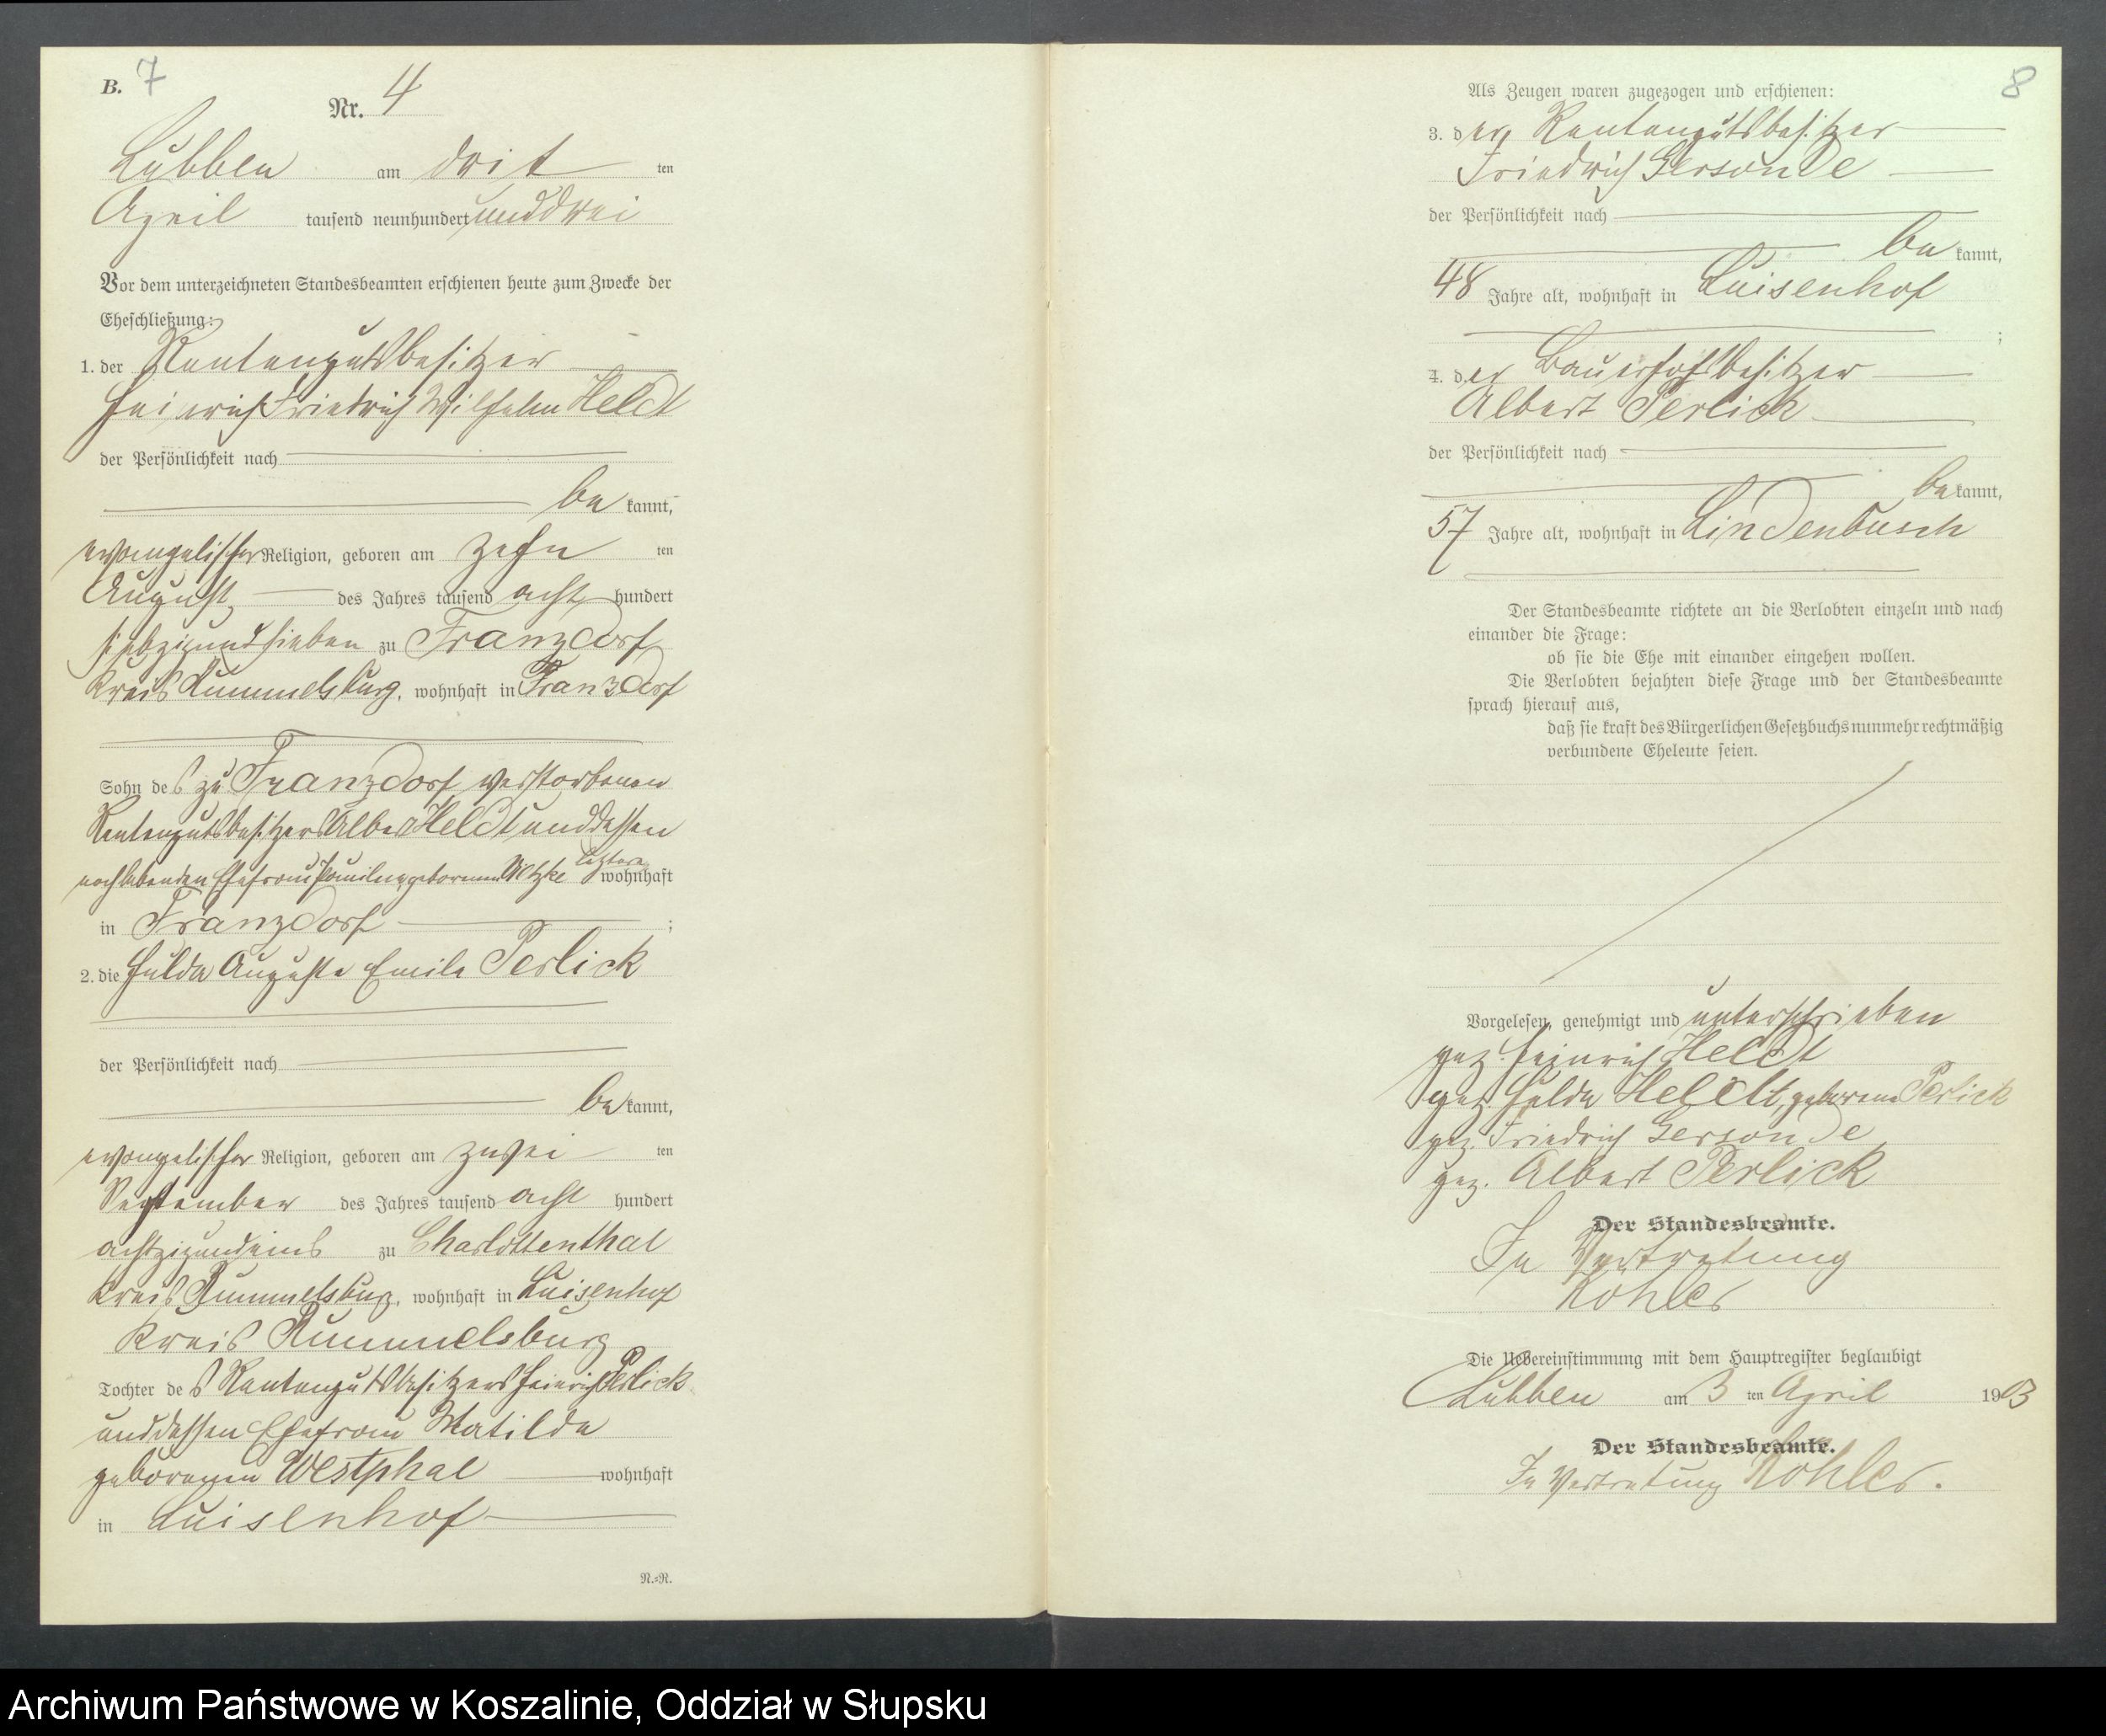 B. 7
Nr. 4
Lubben am drit ten
April tausend neunhundert unddrei
Vor dem unterzeichneten Standesbeamten erschienen heute zum Zwecke der
Eheschließung:
1. der Rentengutsbesitzer
Heinrich Friedrich Wilhelm Heldt
der Persönlichkeit nach
be kannt,
evangelischer Religion, geboren am zehn ten
August des Jahres tausend acht hundert
siebzigundsieben zu Franzdorf
Kreis Rummelsburg, wohnhaft in Franzdorf
Sohn des zu Franzdorf verstorbenen
Rentengutsbesitzers Albert Heldt und dessen
noch lebenden Ehefrau Pauline geborenen letztere wohnhaft
in Franzdorf ;
2. die Hulda Auguste Emilie Perlick
der Persönlichkeit nach
be kannt,
evangelischer Religion, geboren am zwei ten
September des Jahres tausend acht hundert
achtzigundeins zu Charlottenthal
Kreis Rummelsburg, wohnhaft in Luisenhof
Kreis Rummelsburg
Tochter des Rentengutsbesitzers Heinrich Perlick
und dessen Ehefrau Matilde
geborenen Westphal wohnhaft
in Luisenhof
N.=N.
8
Als Zeugen waren zugezogen und erschienen:
3. der Rentengutsbesitzer
Friedrich Gersonde
der Persönlichkeit nach
be kannt,
48 Jahre alt, wohnhaft in Luisenhof
;
4. der Bauerhofsbesitzer
Albert Perlick
der Persönlichkeit nach
be kannt,
57 Jahre alt, wohnhaft in Lindenbusch
Der Standesbeamte richtete an die Verlobten einzeln und nach
einander die Frage:
ob sie die Ehe mit einander eingehen wollen.
Die Verlobten bejahten diese Frage und der Standesbeamte
sprach hierauf aus,
daß sie kraft des Bürgerlichen Gesetzbuchs nunmehr rechtmäßig
verbundene Eheleute seien.
Vorgelesen, genehmigt und unterschrieben
gez. Heinrich Heldt
gez. Hulda Heldt, geborene Perlick
gez. Friedrich Gersonde
gez. Albert Perlick
Der Standesbeamte.
In Vertretung
Köhler
Die Uebereinstimmung mit dem Hauptregister beglaubigt
Lubben am 3 ten April 1903
Der Standesbeamte.
In Vertretung Köhler.
Archiwum Państwowe w Koszalinie, Oddział w Słupsku